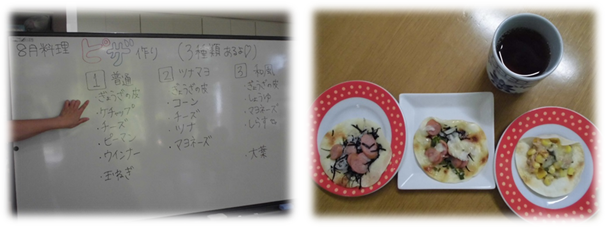 8月料理 ピザ作り (3種類あるよ♡)
1 普通
ぎょうざの皮
・ケチャップ
・チーズ
・ピーマン
・ウインナー
・玉ねぎ
2 ツナマヨ
ぎょうざの皮
・コーン
チーズ
・ツナ
・マヨネーズ
3 和風
ぎょうざの皮
・しょうゆ
・マヨネーズ
・しらす
・大葉